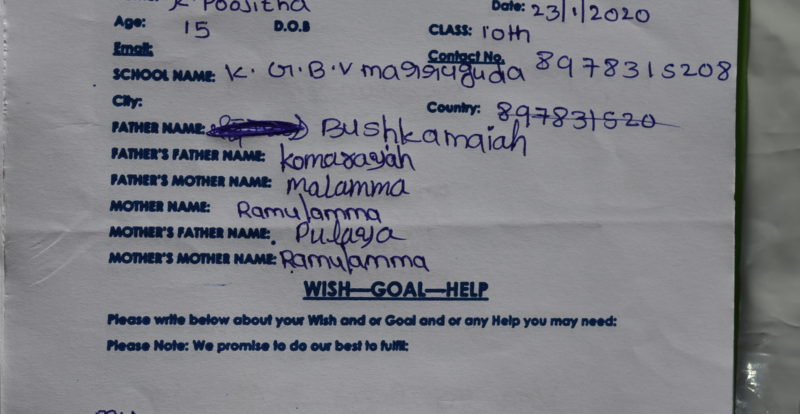 K. Poojitha Date: 23/1/2020
Age: 15 D.O.B CLASS: 10th
Email: Contact No. 8978315208
SCHOOL NAME: K. G. B. V marriguda
City: Country: 897831520
FATHER NAME: Bushkamaiah
FATHER'S FATHER NAME: komarayah
FATHER'S MOTHER NAME: Malamma
MOTHER NAME: Ramulamma
MOTHER'S FATHER NAME: Pulayya
MOTHER'S MOTHER NAME: Ramulamma
WISH—GOAL—HELP
Please write below about your Wish and or Goal and or any Help you may need:
Please Note: We promise to do our best to fulfil: